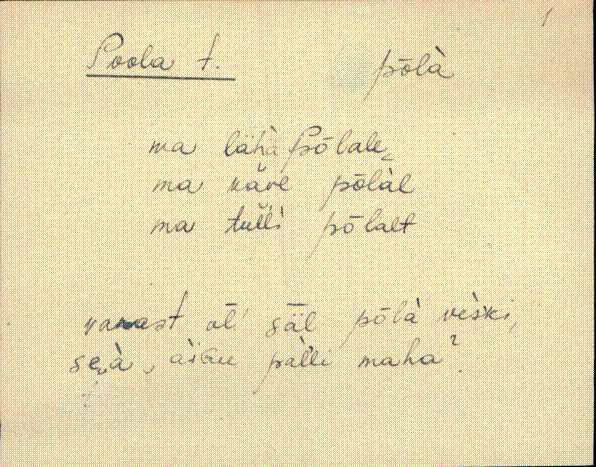 1
Poola t. põlà
ma lähà Põlale,
ma käre põlàl
ma tulli põlalt
vanast oli säl põlà veski,
palli maha?